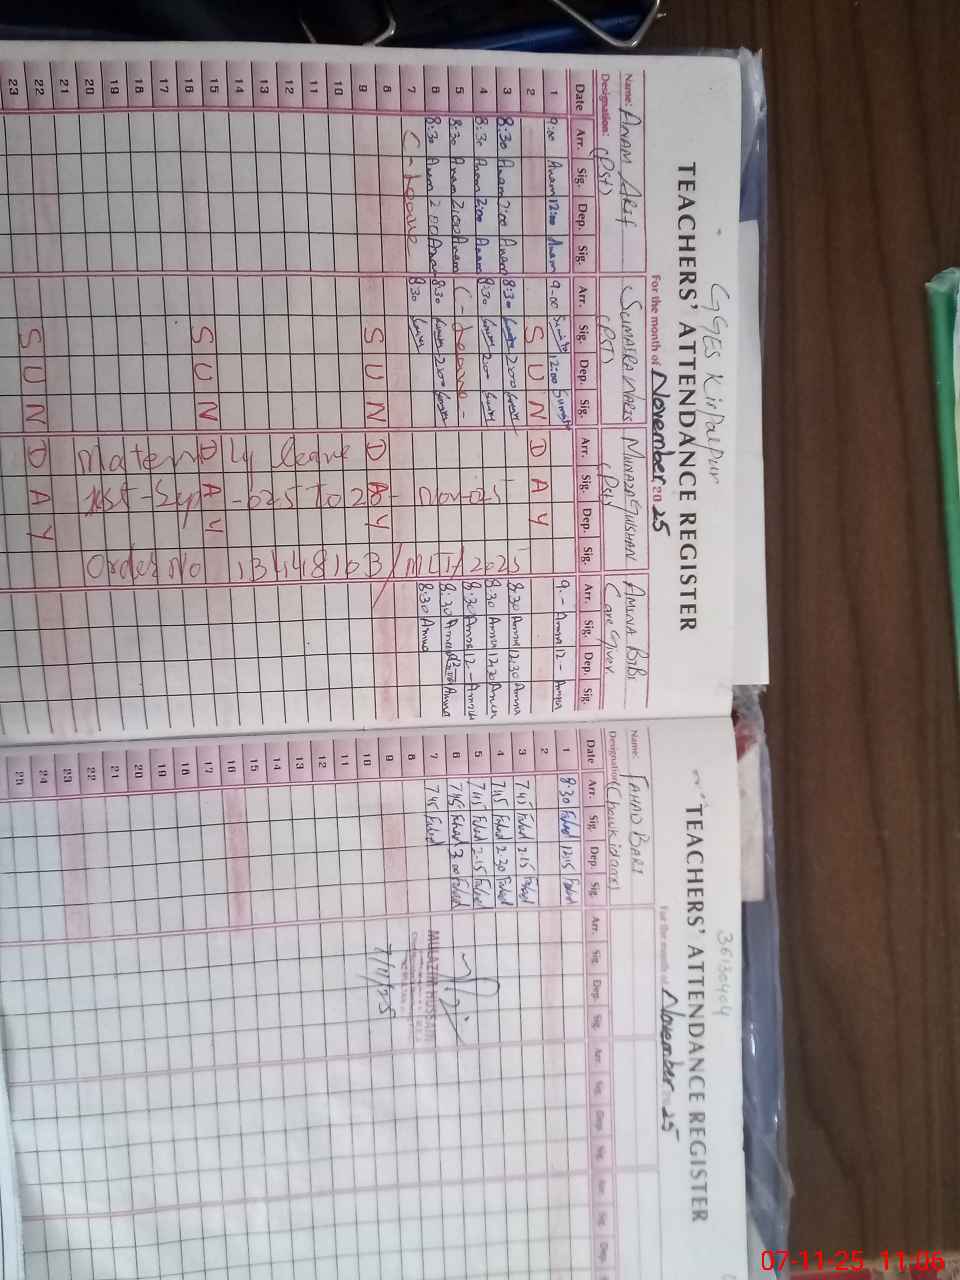 GGES Kirpalpur
TEACHERS' ATTENDANCE REGISTER
For the month of November 2025
Name: ANAM Arif SUMAIRA WARIS MUNAZA GULSHAN AMINA BIBI
Designation: (PST) (PST) (PST) Care Giver
Date Arr. Sig. Dep. Sig. Arr. Sig. Dep. Sig. Arr. Sig. Dep. Sig. Arr. Sig. Dep. Sig.
1 9:00 Anam 12:00 Anam 9-00 12:00 9.- Amna 12- Amna
2 SUNDAY
3 8:30 Anam 2:00 Anam 8:30 2:00 8:30 Amna 12:30 Amna
4 8:30 Anam 2:00 Anam 8:30 2:00 8:30 Amna 12:30 Amna
5 8:30 Anam 2:00 Anam C-Leave 8:30 Amna 12- Amna
6 8:30 Anam 2:00 Anam 8:30 2:00 8:30 Amna Amna
7 C-Leave 8:30 8:30 Amna
8
9 SUNDAY
10
11
12
13
14
15 SUNDAY
16
17
18
19
20
21
22 SUNDAY
23
Maternity Leave
Order No
36130404
TEACHERS' ATTENDANCE REGISTER
For the month of November 2025
Name: FAHAD BARI
Designation (Choukidar)
Date Arr. Sig. Dep. Sig. Arr. Sig. Dep. Sig. Arr. Sig. Dep. Sig. Arr. Sig. Dep.
1 8:30 Fahad 12:15 Fahad
2
3 7:45 Fahad 2:15 Fahad
4 7:45 Fahad 2:30 Fahad
5 7:45 Fahad 2:15 Fahad
6 7:45 Fahad 3:00 Fahad
7 7:45 Fahad
8
9
10
11
12
13
14
15
16
17
18
19
20
21
22
23
24
25
MULAZIM HUSSAIN
7/11/25
07-11-25 11:06